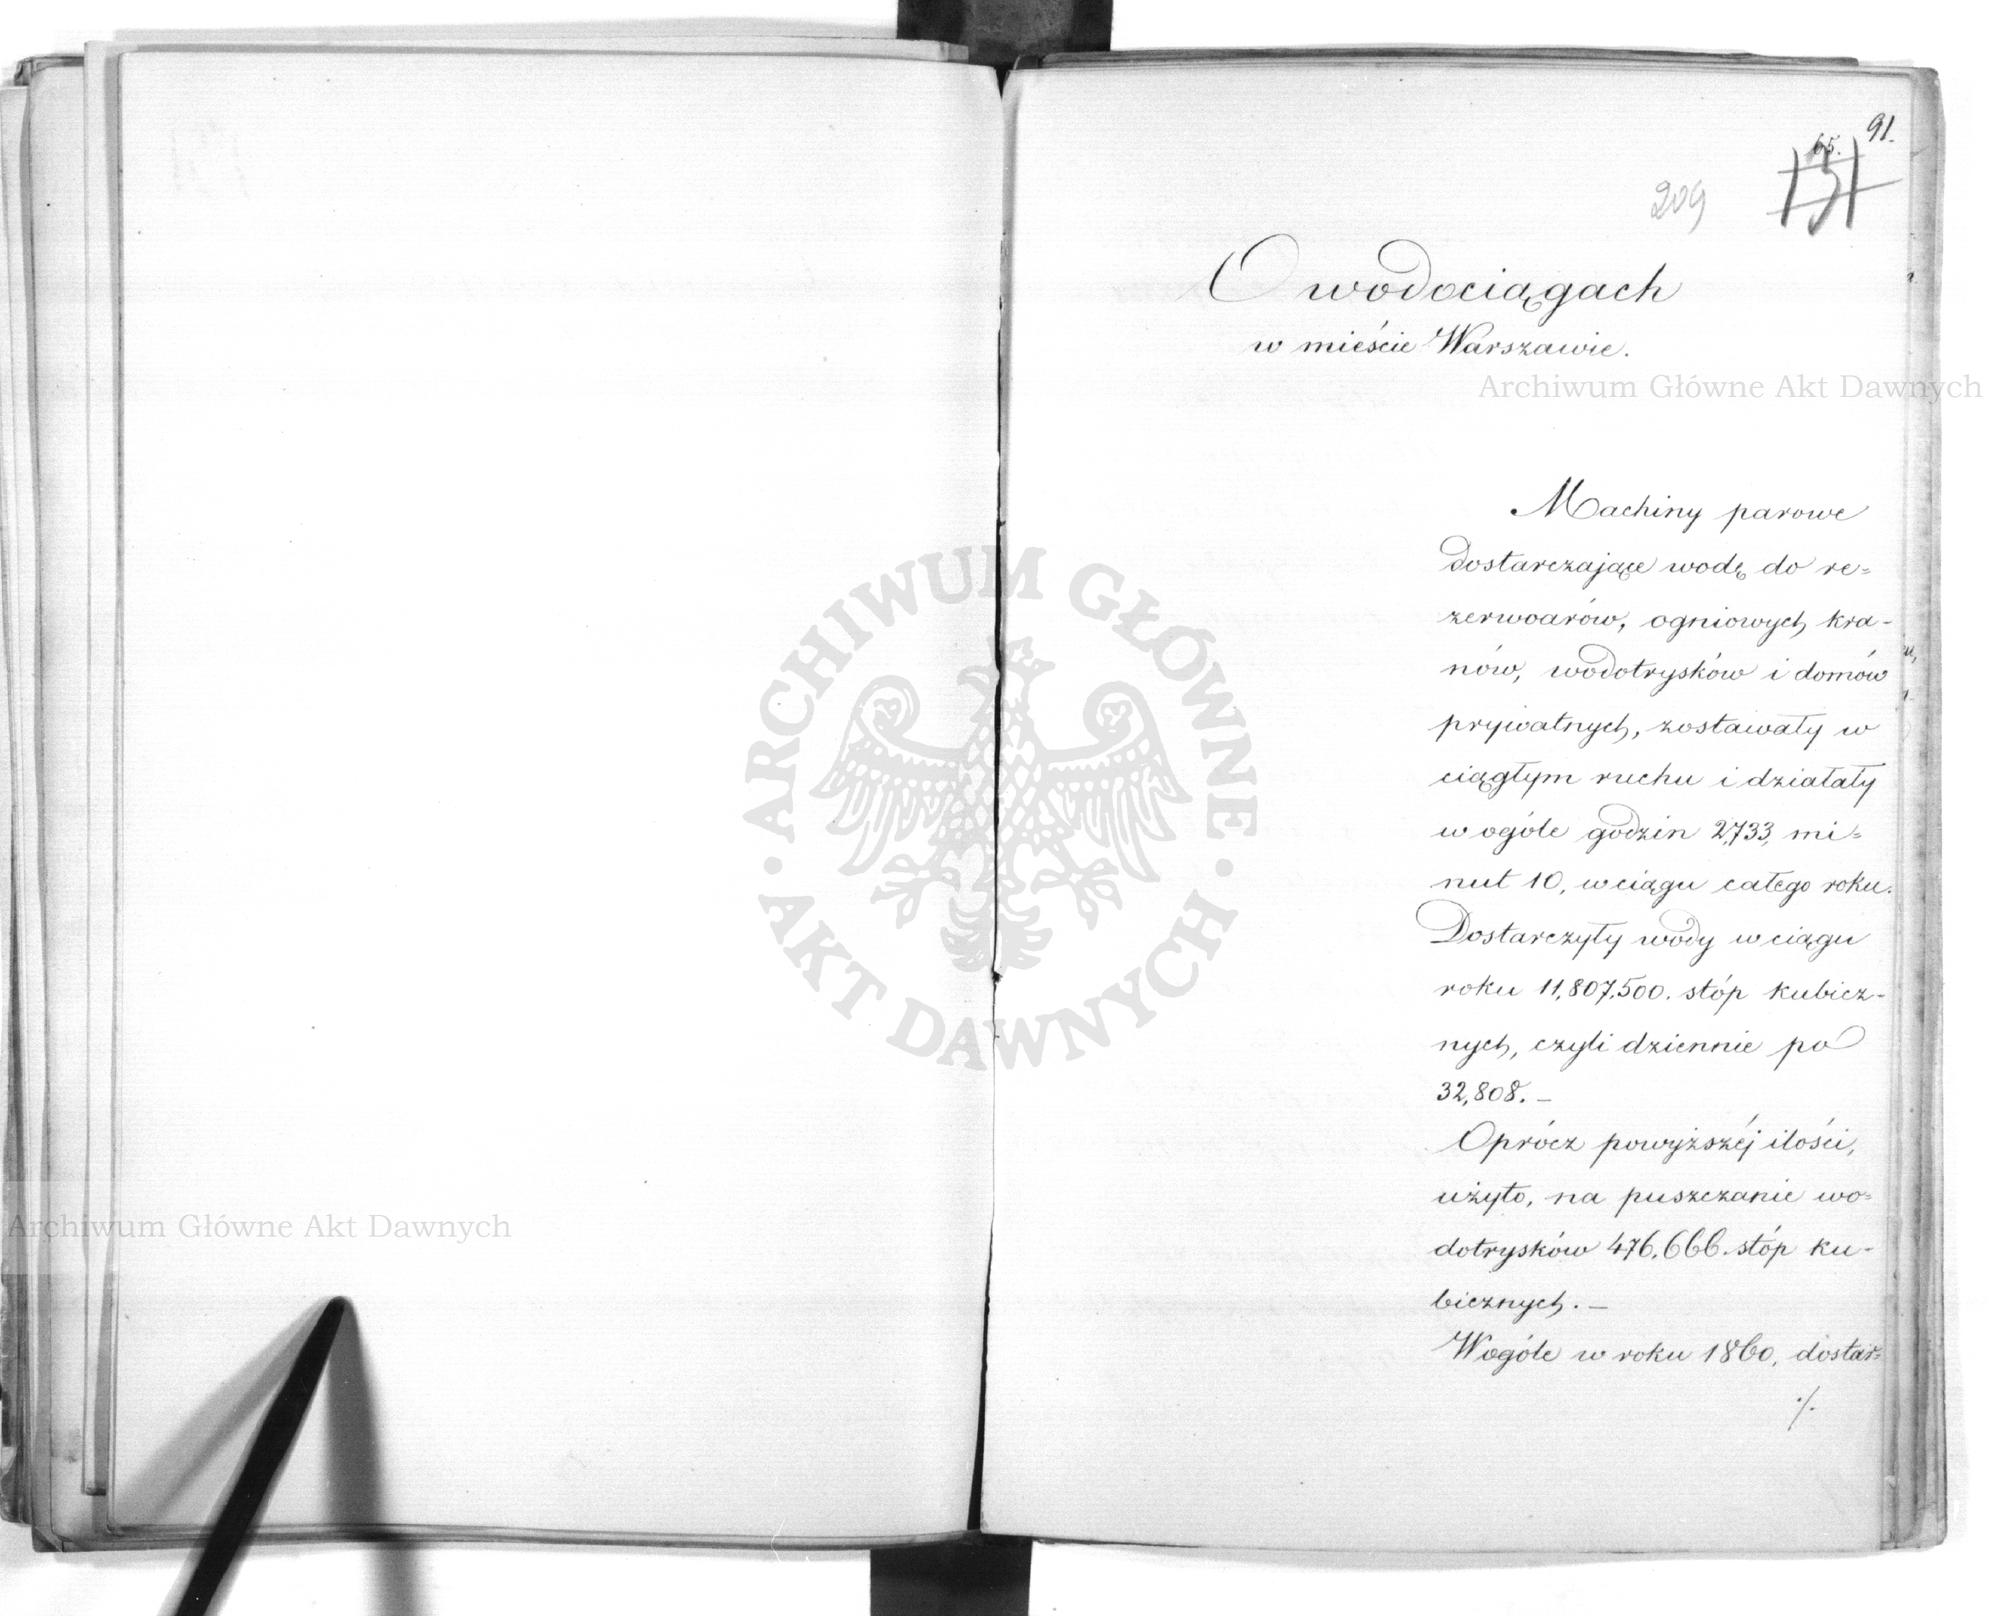 91.
65.
131
209
O wodociągach
w mieście Warszawie.
Archiwum Główne Akt Dawnych
Machiny parowe
dostarczające wodę do re=
zerwoarów, ogniowych kra-
nów, wodotrysków i domów
prywatnych, zostawały w
ciągłym ruchu i działały
w ogóle godzin 2,733, mi=
nut 10, w ciągu całego roku.
Dostarczyły wody w ciągu
roku 11,807,500. stóp kubicz-
nych, czyli dziennie po
32,808. –
Oprócz powyższéj ilości,
użyto, na puszczanie wo=
dotrysków 476,666. stóp ku-
bicznych. –
Wogóle w roku 1860, dostar=
./.
ARCHIWUM GŁÓWNE
AKT DAWNYCH
Archiwum Główne Akt Dawnych